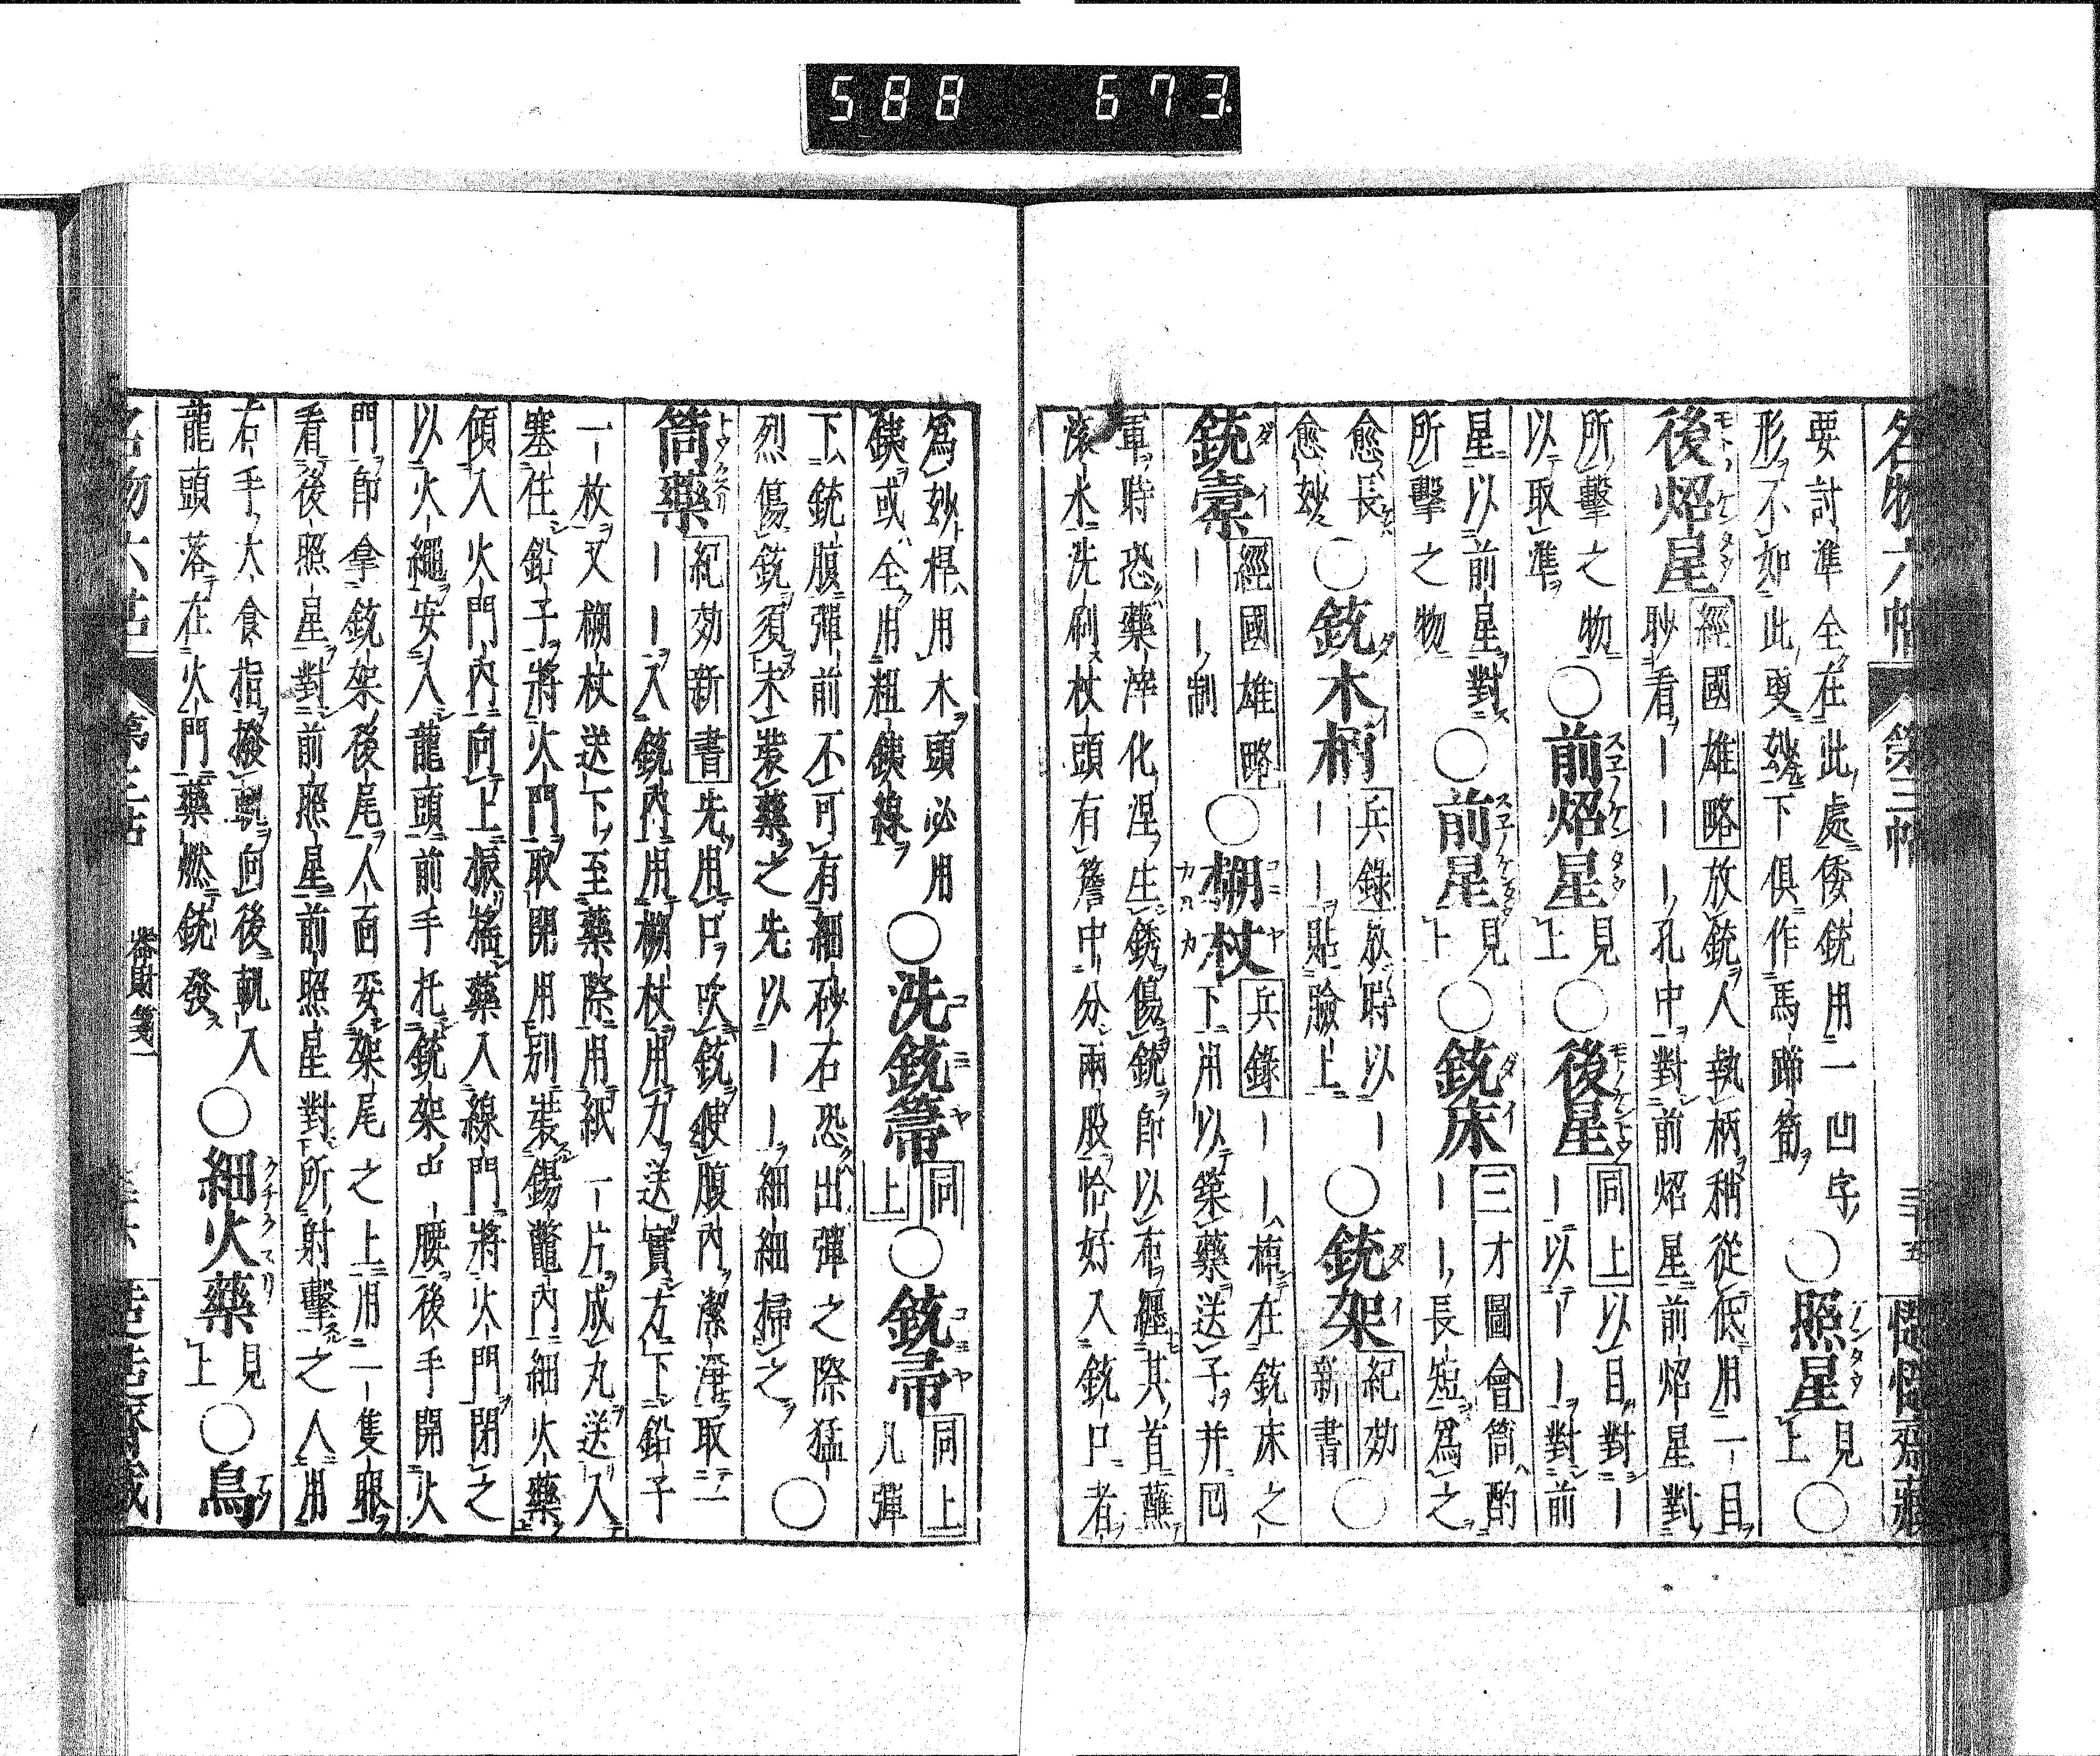 588 673
名物六帖 第三帖 三十五 慥慥齋藏
要討準全在此處倭銃用一凹字
形不如此更妙下俱作馬蹄筍
○照星見上○
後炤星經國雄略放銃人執柄稍從低用一目
眇看———孔中對前炤星前炤星對
所擊之物
以取準
○前炤星見上○後星同上以目對—
—以——對前
星以前星對
所擊之物
○前星見上○銃床三才圖會筒酌
———長短爲之
愈長
愈妙
○銃木柄兵錄放時以—
——貼臉上
○銃架紀効新書○
銃橐經國雄略
———制
○搠杖兵錄———插在銃床之
下用以築藥送子并
軍時恐藥滓化涅生銹傷銃卽以布纒其首蘸
滾水洗刷杖頭有簷中分兩股恰好入銃口者
爲妙桿用木頭必用
銕或全用粗銕線
○洗銃箒同上○銃帚同上凡彈
下銃腹彈前不可有細砂石恐出彈之際猛
烈傷銃須未裝藥之先以——細細掃之
○
筒藥紀効新書先用口吹銃使腹內潔淨取—
———入銃內用搠杖用力送實方下鉛子
一枚又搠杖送下至藥際用紙一片成丸送入
塞住鉛子將火門取開用別裝錫鼈內細火藥
傾入火門內向上振搖藥入線門將火門閉之
以火繩安入龍頭前手托銃架中腰後手開火
門卽拿銃架後尾人面妥架尾之上用一隻眼
看後照星對前照星前照星對所射擊之人用
右手大食指撥軌向後軌入
龍頭落在火門藥燃銃發
○細火藥見上○鳥
名物六帖 第三帖 器財箋一